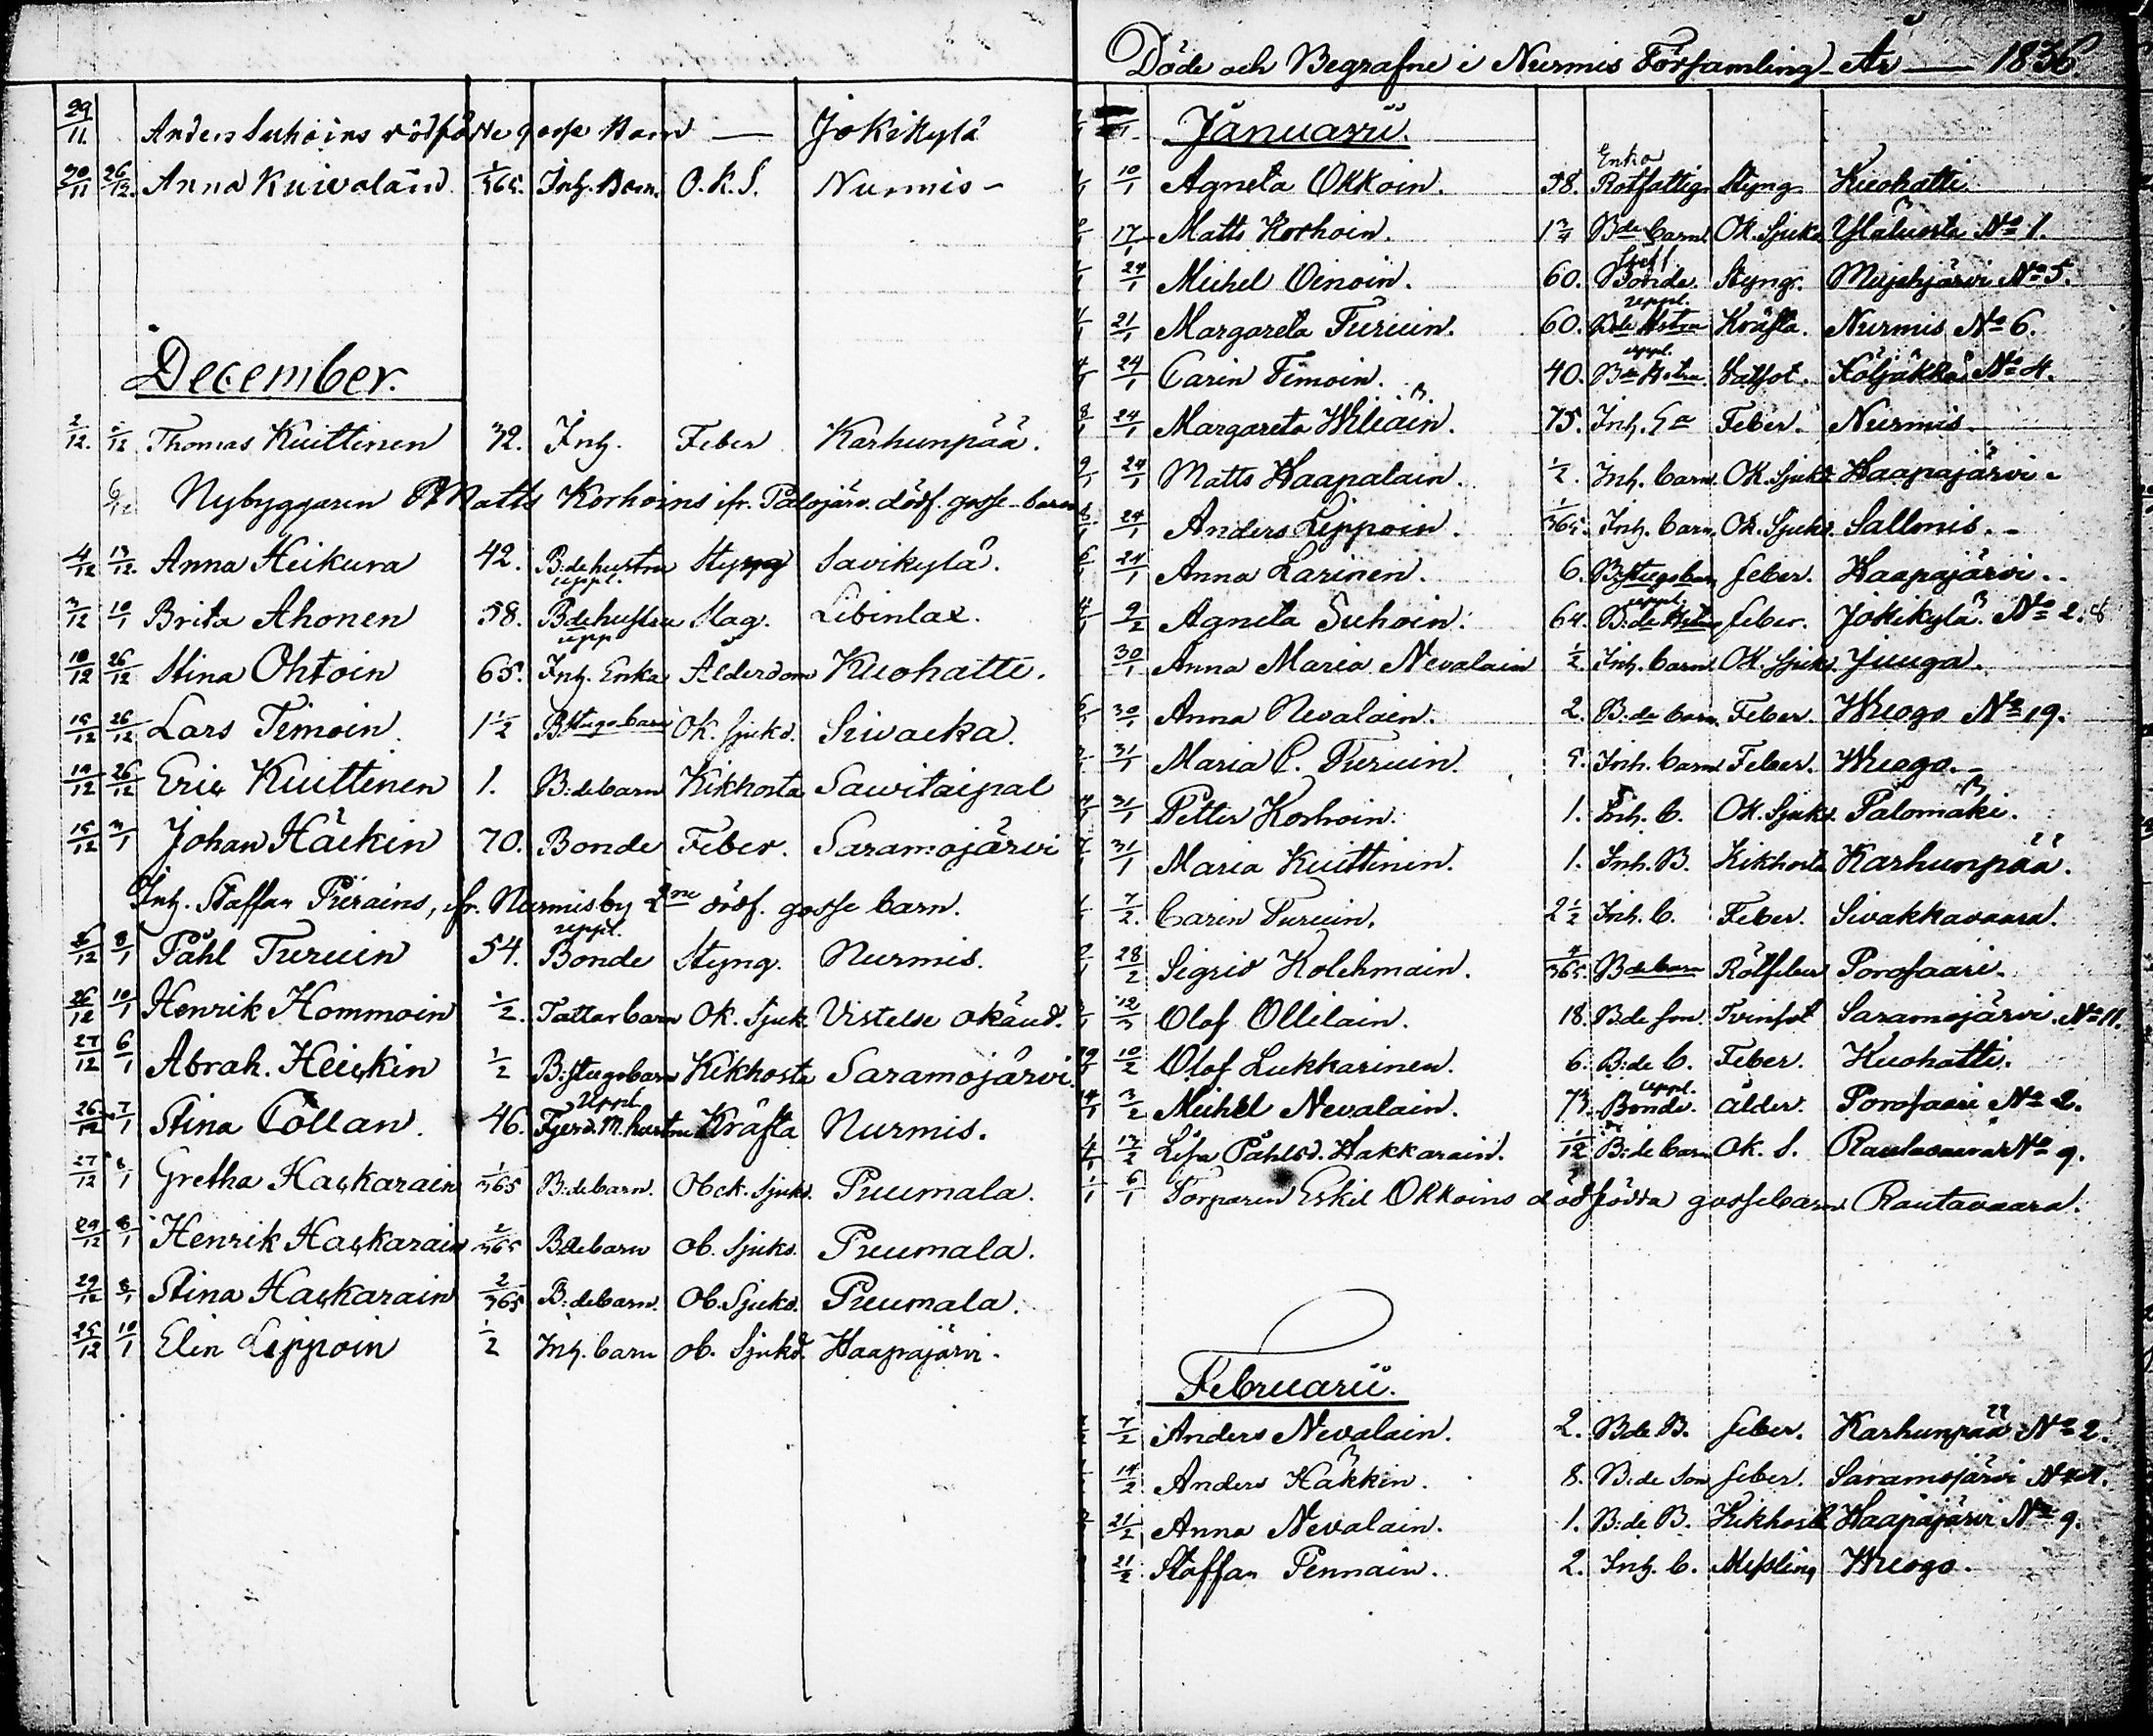 29/11. Anders Suhoins dödfödde gosse Barn — Jokikylä
30/11 26/12. Anna Kuivalain 1/365. Inh. Barn. O.K.S. Nurmis -
December.
2/12. /12 Thomas Kuittinen 32. Inh. Feber Karhunpää.
6/12 Nybyggaren Matts Korhoins ifr. Palojärv. dödf. gosse-barn
4/12 13/12. Anna Heikura 42. B:dehustru Styng Savikylä
3/12 10/1 Brita Ahonen 58. uppl. B:dehustru Slag. Libinlax.
18/12 26/12 Stina Ohtoin 65. upp Inh. Enka Ålderdom Kuohatti.
15/12 26/12 Lars Timoin. 1 1/2 Bstugobarn Ok. sjukd. Sivacka.
14/12 26/12 Eric Kuittinen 1. B:debarn Kikhosta Savitaipal
15/12 3/1 Johan Häckin 70. Bonde Feber. Saramojärvi
Inh. Staffan Pieräins, ifr. Nurmisby 2ne dödf. gosse barn.
/12 8/1 Påhl Turuin 54. uppl. Bonde Styng. Nurmis.
26/12 10/1 Henrik Hommoin 1/2. Tattar barn Ok. Sjuk. Vistelse okänd.
27/12 6/1 Abrah. Heickin 1/2 B:stugobarn Kikhosta Saramojärvi.
26/12 7/1 Stina Collan. 46. Uppl. Fjerd. M. hustru Kräfta Nurmis.
27/12 8/1 Gretha Hackarain 1/365 B:debarn. Obek. Sjukd. Puumala.
29/12 8/1 Henrik Hackarain 2/365 B:debarn Ob. sjukd. Puumala.
29/12 8/1 Stina Hackarain 2/365 B:debarn. Ob. Sjukd. Puumala.
25/12 10/1 Elin Leppoin 1/2 Inh. barn ob. Sjukd. Haapajärvi.
Döde och Begrafne i Nurmis Församling År — 1836.
Januarii.
10/1 Agneta Okkoin. 58. Enka Rotfattig Styng Kuohatti
17/1 Matts Korhoin. 1 3/4 Bde barn Ok. Sjukd. Yläluosta No 1.
24/1 Michel Oinoin. 60. Bonde. Styng. Mujehjärvi No 5.
21/1 Margareta Turuin. 60. uppl. Bde Hstru Kräfta. Nurmis No 6.
24/1 Carin Timoin. 40. uppl. Bde Hstru Köljäkkä No 4.
24/1 Margareta Wiliäin. 75. Inh. Feber. Nurmis
24/1 Matts Haapalain. 1/2. Inh. barn. Ok. Sjukd. Haapajärvi.
24/1 Anders Leppoin. 1/365. Inh. barn. Ok. Sjukd. Sallmis. -
24/1 Anna Larinen. 6. B:stugobarn feber. Haapajärvi..
9/2 Agneta Suhoin. 64. uppl. B:de Hstru feber. Jokikylä No 2.
30/1 Anna Maria Nevalain 1/2. Inh. barn Ok. sjukd. Juuga.
30/1 Anna Nevalain. 2. B:de barn. Feber. Wuogo No 19.
31/1 Maria C. Turuin. Inh. barn Feber. Wuogo. -
31/1 Petter Korhoin. 1. Inh. b. Ok. Sjukd. Palomäki.
31/1 Maria Kuittinin. 1. Inh. B. Kikhosta Karhunpää.
7/2. Carin Turuin. 2 1/2 Inh. b. Feber. Sivakkavaara.
28/2 Sigrid Kolehmain. 4/365. Bdebarn Rötfeber Porosaari.
12/ Olof Ollilain. 18. Bde son. Tvinsot Saramojärvi. No 11.
10/2 Olof Lukkarinen. 6. B:de b. Feber. Kuohatti.
3/2 Michel Nevalain. 73. uppl. Bonde. ålder. Porosaari No 2.
17/2 Lisa Påhlsd. Hakkarain. 1/12 B:de barn Ok. S. Rautavaara No 9.
6/1 Torparen Eskil Okkoins dödfödda gossebarn Rautavaara.
Februarii.
7/2 Anders Nevalain. 2. Bde B. feber. Karhunpää No 2.
14/2 Anders Häkkin. 8. B:de Son feber. Saramojärvi
21/2 Anna Nevalain. 1. B:de B. Kikhosta Haapajärvi No 9.
21/2 Staffan Pennäin. 2. Inh. b. Messling Wuogo.